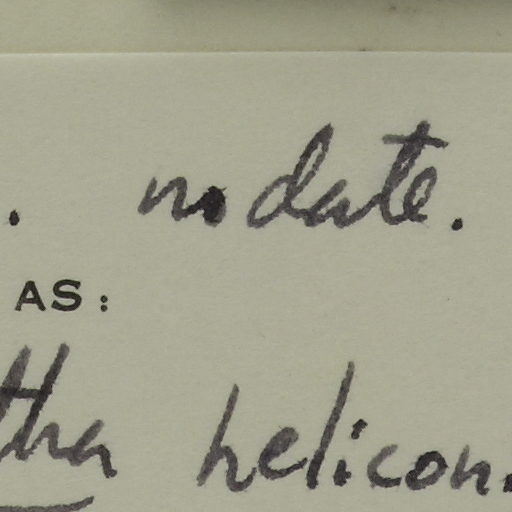 . no date.
AS:
tha helicon